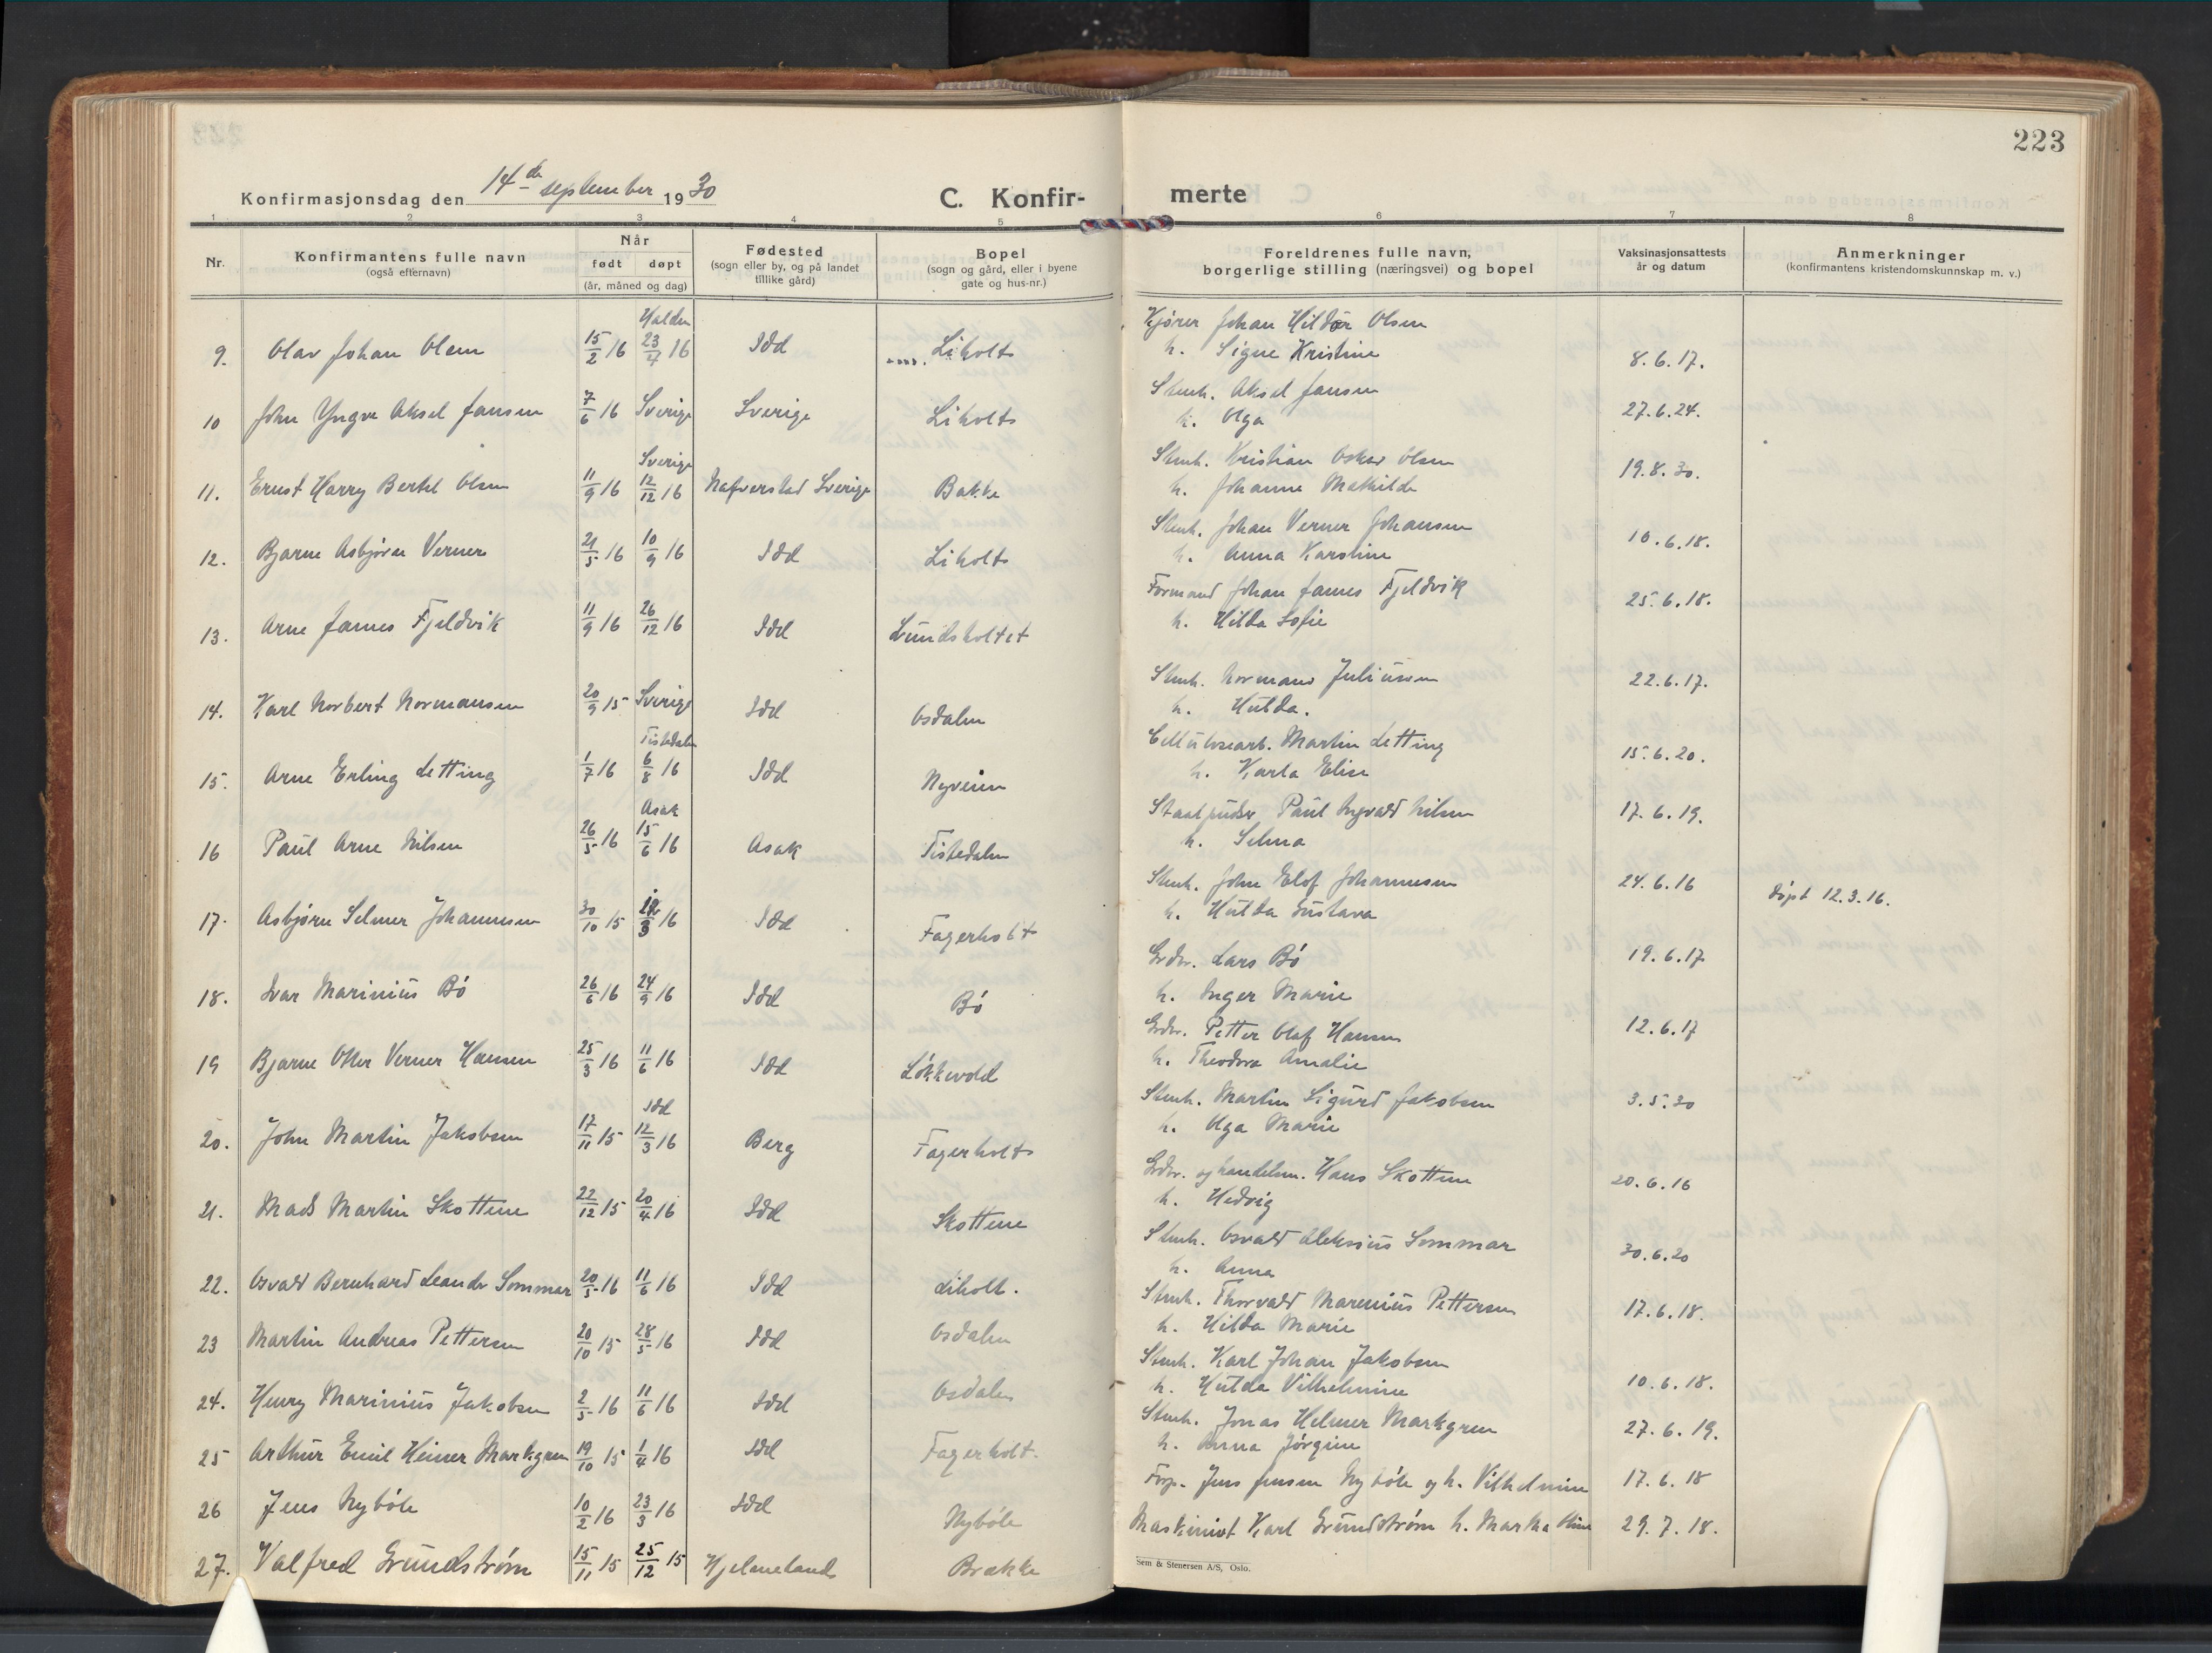 223
Konfirmasjonsdag den 14de september 1930
C. Konfir-
merte
1 2 3 4 5 6 7 8
Nr.
Konfirmantens fulle navn
(også efternavn)
Når
født døpt
(år, måned og dag)
Fødested
(sogn eller by, og på landet
tillike gård)
Bopel
(sogn og gård, eller i byene
gate og hus-nr.)
Foreldrenes fulle navn,
borgerlige stilling (næringsvei) og bopel
Vaksinasjonsattests
år og datum
Anmerkninger
(konfirmantens kristendomskunnskap m. v.)
Halden
Kjører Johan Hildor Olsen
9. Olav Johan Olsen 15/2 16 23/4 16 Idd Liholt
h. Signe Kristine 8.6.17.
Stenh. Aksel Jansen
10 John Yngve Aksel Jansen 7/6 16 Sverige Sverige Liholt
h. Olga 27.6.24.
Sverige
Stenh. Kristian Oskar Olsen
11. Ernst Harry Bertel Olsen 11/9 16 12/12 16 Nafverstad Sverige Bakke
h. Johanne Mathilde 19.8.30.
Stenh. Johan Verner Johansen
12. Bjarne Asbjørn Verner 21/5 16 10/9 16 Idd Liholt
h. Anna Karoline 10.6.18.
Formand Johan James Fjeldvik
13. Arne James Fjeldvik 11/9 16 26/12 16 Idd Lundsholtet
h. Hilda Sofie 25.6.18.
Stenh. Norman Juliussen
14. Karl Norbert Normansen 20/9 15 Sverige Idd Osdalen
h. Hulda. 22.6.17.
Tistedalen
Cellulosearb. Martin Letting
15. Arne Erling Letting 1/7 16 6/8 16 Idd Nyveien
h. Karla Elise 15.6.20.
Asak
Paul Ingvald Nilsen
16 Paul Arne Nilsen 26/5 16 15/6 16 Asak Tistedalen
h. Selma 17.6.19.
Stenh. John Elof Johannesen
17. Asbjørn Selmer Johannesen 30/10 15 12/3 16 Idd Fagerholt
h. Hulda Gustava 24.6.16 døpt 12.3.16.
Grdbr. Lars Bö
18. Ivar Marinius Bö 26/6 16 24/9 16 Idd Bö
h. Inger Marie 19.6.17
Grdbr. Petter Olaf Hansen
19 Bjarne Otter Verner Hansen 25/3 16 11/6 16 Idd Lökkevold
h. Theodora Amalie 12.6.17
Idd
Stenh. Martin Sigurd Jakobsen
20. John Martin Jakobsen 17/11 15 12/3 16 Berg Fagerholt
h. Olga Marie 3.5.20
Grdbr. og handelsm. Hans Skottene
21. Mads Martin Skottene 22/12 15 20/4 16 Idd Skottene
h. Hedvig 20.6.16
Stenh. Osvald Aleksius Sommar
22. Osvald Bernhard Leander Sommar 20/5 16 11/6 16 Idd Liholt.
h. Anna 30.6.20
Stenh. Thorvald Marenius Pettersen
23 Martin Andreas Pettersen 20/10 15 28/5 16 Idd Osdalen
h. Hilda Marie 17.6.18.
Stenh. Karl Johan Jakobsen
24. Henry Marinius Jakobsen 2/5 16 11/6 16 Idd Osdalen
h. Hulda Vilhelmine 10.6.18.
Stenh. Jonas Helmer Markgren
25 Arthur Emil Heiner Markgren 19/10 15 1/4 16 Idd Fagerholt.
h. Anna Jörgine 27.6.19.
26 Jens Nyböle 10/2 16 23/3 16 Idd Nyböle
Forp. Jens Jensen Nyböle og h. Vilhelmine 17.6.18
27. Valfred Grundström 15/11 15 25/12 15 Hjelmeland Brække
Maskinist Karl Grundström h. Martha 29.7.18.
Sem & Stenersen A/S, Oslo.